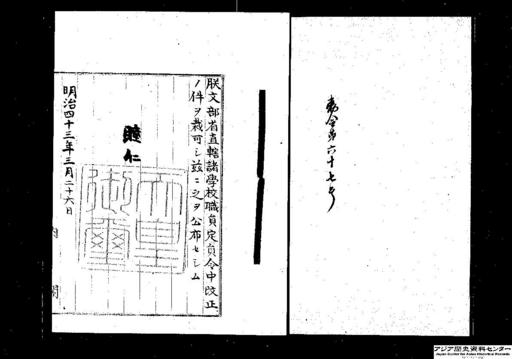 勅令第六十七号
朕文部省直轄諸学校職員定員令中改正
ノ件ヲ裁可シ玆ニ之ヲ公布セシム
睦仁
天皇御璽
明治四十三年三月二十六日
内閣
アジア歴史資料センター
Japan Center for Asian Historical Records